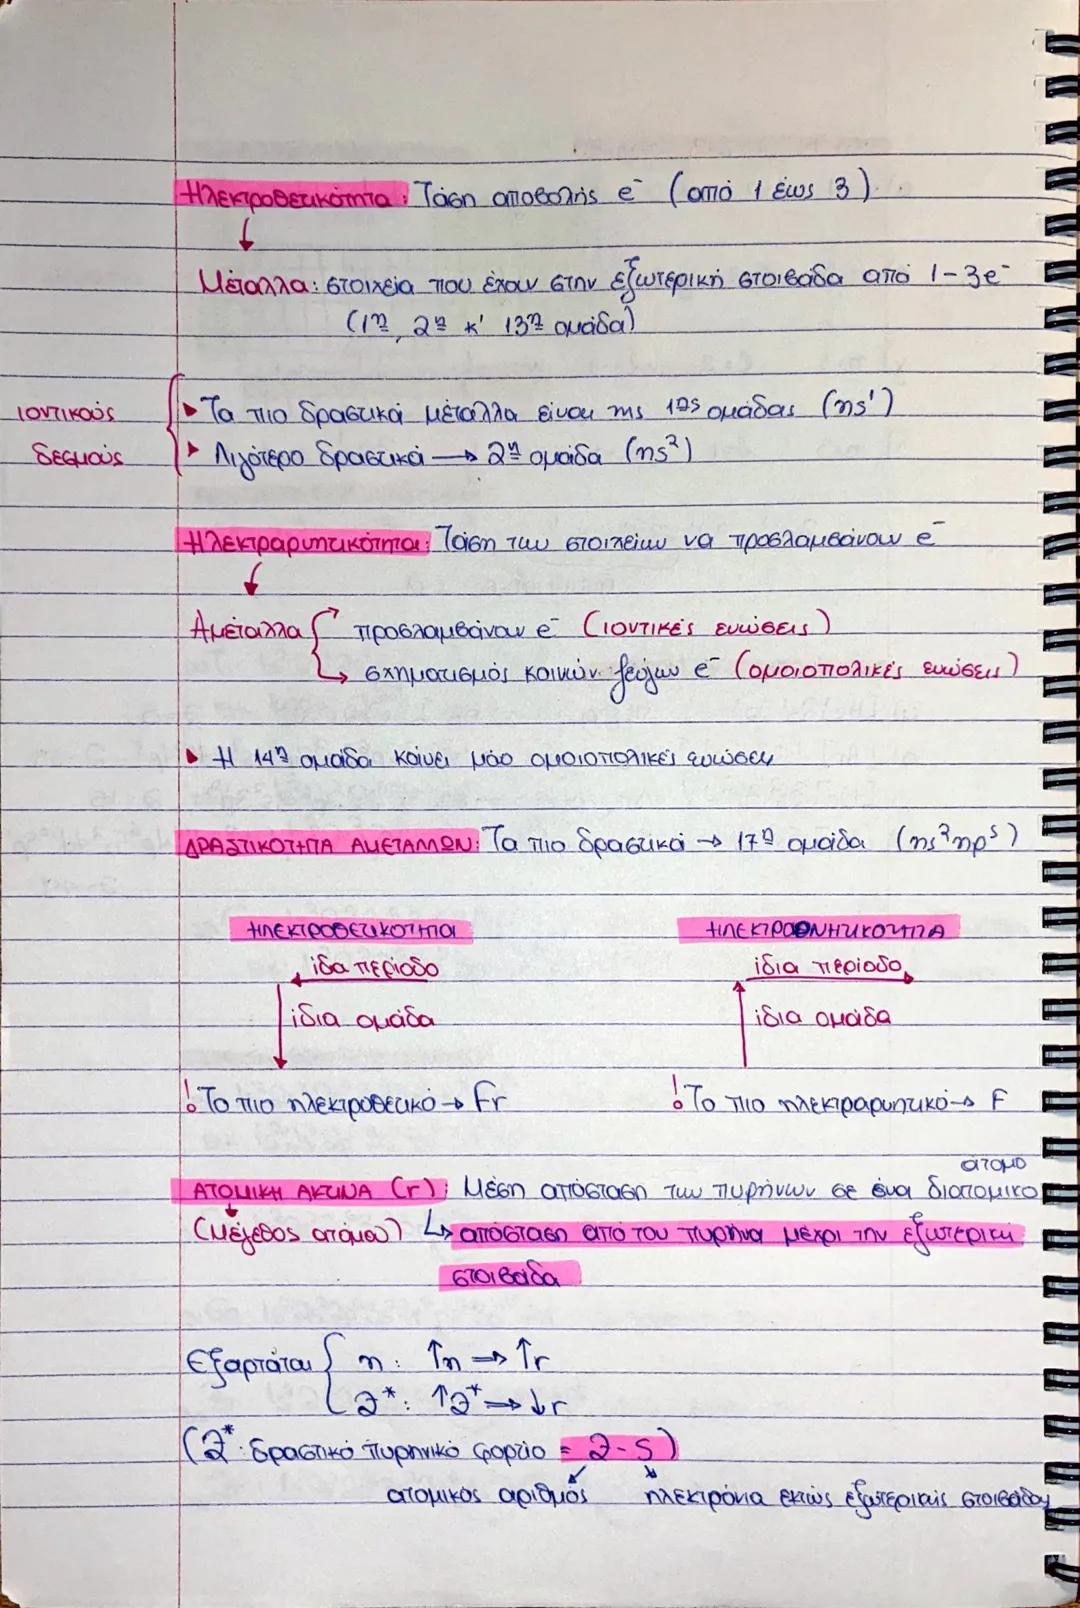 Ηλεκτροθετικότητα: Τάση αποβολής e⁻ (από 1 έως 3)
Μέταλλα: στοιχεία που έχουν στην εξωτερική στοιβάδα από 1-3e⁻
(1η, 2η κ' 13η ομάδα)
ιοντικούς
δεσμούς
▸ Τα πιο δραστικά μέταλλα είναι της 1ης ομάδας (ns¹)
▸ Λιγότερο δραστικά → 2η ομάδα (ns²)
Ηλεκτραρνητικότητα: Τάση των στοιχείων να προσλαμβάνουν e⁻
Αμέταλλα → προσλαμβάνουν e⁻ (ιοντικές ενώσεις)
→ σχηματισμός κοινών ζεύγων e⁻ (ομοιοπολικές ενώσεις)
▸ Η 14η ομάδα κάνει μόο ομοιοπολικές ενώσεις
ΔΡΑΣΤΙΚΟΤΗΤΑ ΑΜΕΤΑΛΛΩΝ: Τα πιο δραστικά → 17η ομάδα (ns²np⁵)
ΗΛΕΚΤΡΟΘΕΤΙΚΟΤΗΤΑ
ίδα περίοδο
ίδια ομάδα
! Το πιο ηλεκτροθετικό → Fr
ίδια περίοδο
ίδια ομάδα
! Το πιο ηλεκτραρνητικό → F
ΑΤΟΜΙΚΗ ΑΚΤΙΝΑ (r): Μέση απόσταση των πυρήνων σε ένα διατομικό άτομο
(Μέγεθος ατόμου) ↳ απόσταση από του πυρήνα μέχρι την εξωτερική
στοιβάδα
Εξαρτάται { n: ↑n → ↑r
Z*: ↑Z* → ↓r
(Z*: δραστικό πυρηνικό φορτίο = Z-S)
ατομικός αριθμός
ηλεκτρόνια εκτός εξωτερικής στοιβάδας